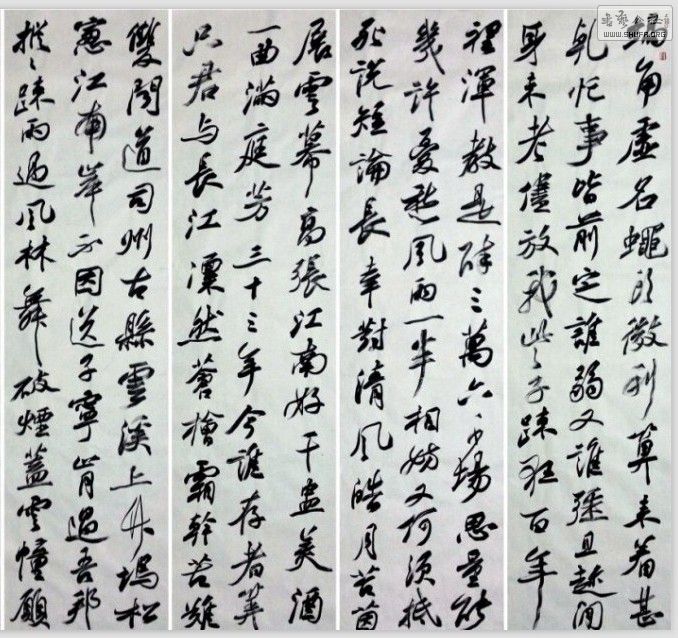 蝸角虛名蠅頭微利算来着甚
乾忙事皆前定誰弱又誰強且趁閒
身未老儘放我些子疎狂百年
裡渾教是醉三萬六千場思量能
幾許憂愁風雨一半相妨又何須抵
死説短論長幸對清風皓月苔茵
展雲幕高張江南好千盅美酒
一曲滿庭芳三十三年今誰存者算
只君与長江凜然蒼檜霜幹苦難
雙聞道司州古縣雲溪上竹塢松
窻江南岸不因送子寧肯過吾邦
摐〻疎雨過風林舞破煙蓋雲幢願
WWW.SHUFA.ORG